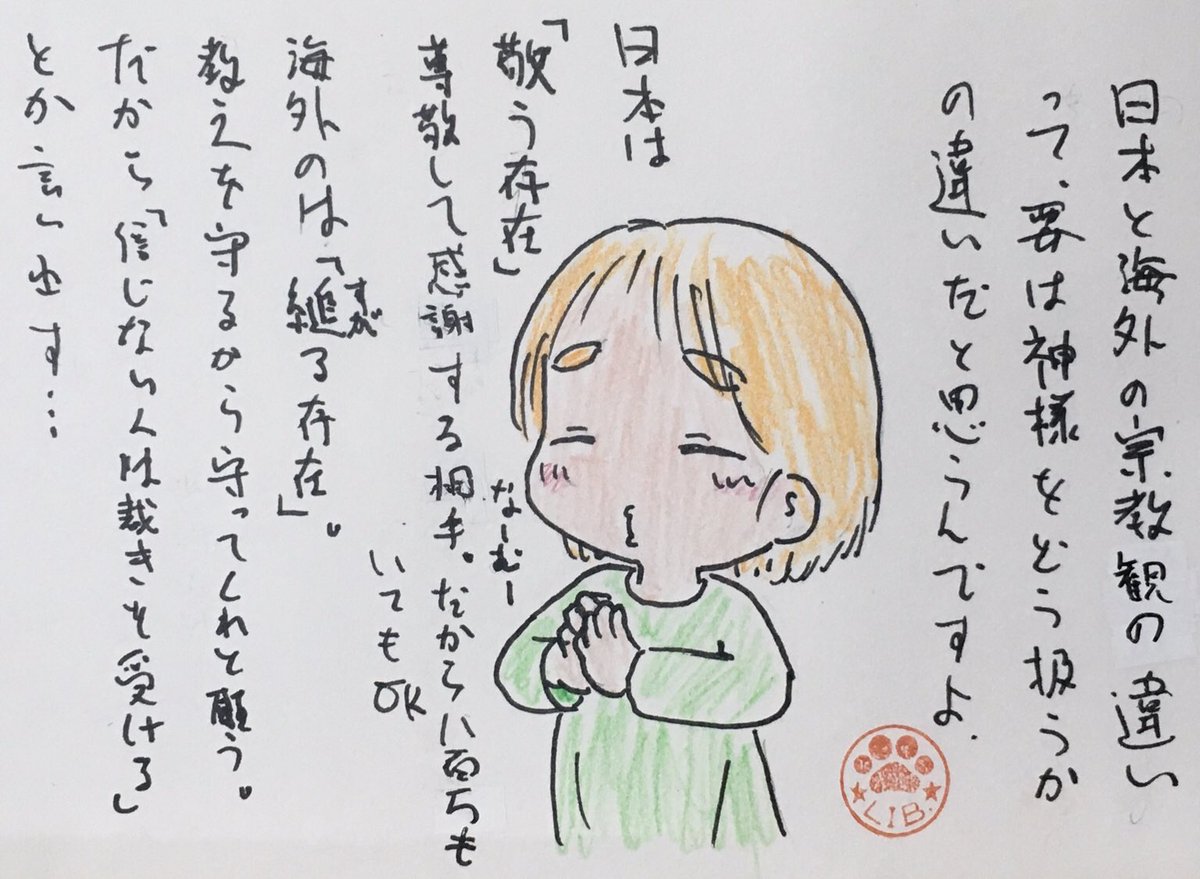 日本と海外の宗教観の違い
って、要は神様をどう扱うか
の違いだと思うんですよ.
日本は
「敬う存在」
尊敬して感謝する相手。だから八百万も
いてもOK
なーむー
海外のは「縋る存在」。
すが
教えを守るから守ってくれと願う。
だから「信じない人は裁きを受ける」
とか言い出す…
LIB.